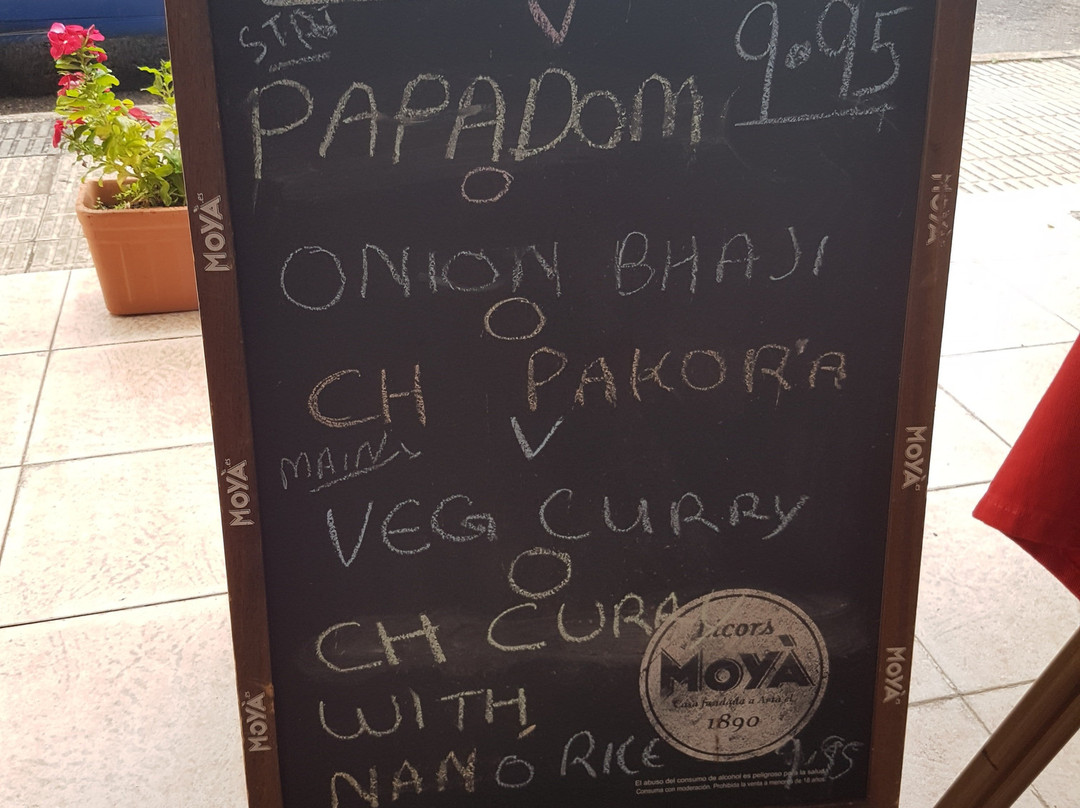 STAr
9.95
PAPADOM
O
ONION BHAJI
O
CH PAKORA
MAIN
VEG CURRY
O
CH CURR
WITH
NAN O RICE 9.95
Licors
MOYÀ
Casa fundada a Artà el
1890
El abuso del consumo de alcohol es peligroso para la salud.
Consuma con moderación. Prohibida la venta a menores de 18 años
MOYÀ.es
MOYÀ.es
MOYÀ.es
MOYÀ
MOYÀ.es
MOYÀ.es